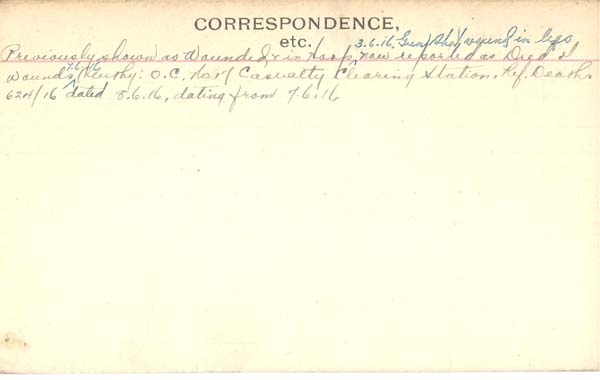 CORRESPONDENCE,
etc.
3.6.16. Gun Shot wound in legs
Previously shown as Wounded & in Hosp, now reported as Died of
7.6.16
wounds, Authy: O.C. No 17 Casualty Clearing Station. Ref. Deaths
624/16 dated 8.6.16, dating from 7.6.16